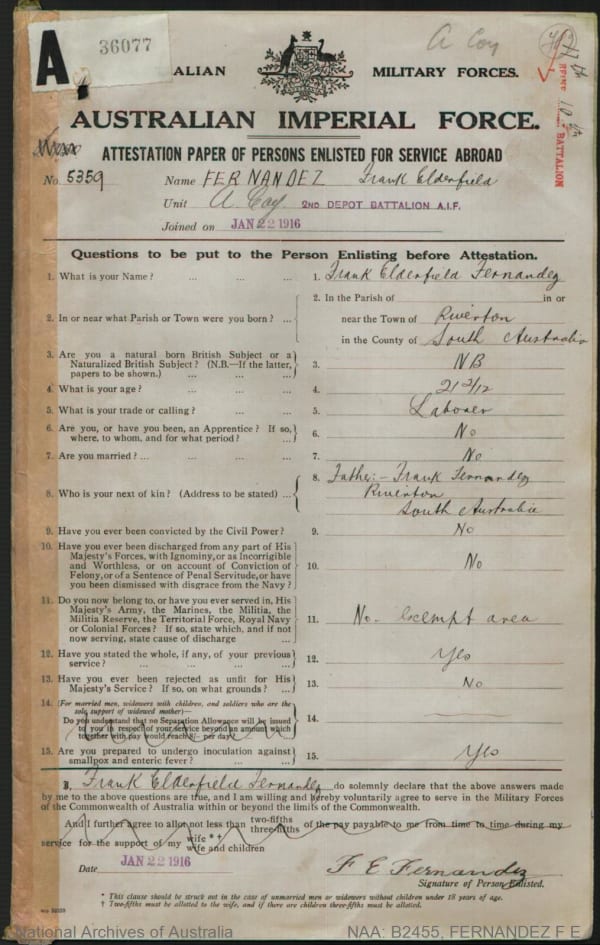 A 36077
A Coy
ALIAN MILITARY FORCES.
AUSTRALIAN IMPERIAL FORCE.
ATTESTATION PAPER OF PERSONS ENLISTED FOR SERVICE ABROAD
BATTALION
No. 5359 Name FERNANDEZ Frank Elderfield
Unit A Coy. 2ND DEPOT BATTALION A.I.F.
Joined on JAN 22 1916
Questions to be put to the Person Enlisting before Attestation.
1. What is your Name? ... ... ... 1. Frank Elderfield Fernandez
2. In the Parish of in or
2. In or near what Parish or Town were you born? ... near the Town of Riverton
in the County of South Australia
3. Are you a natural born British Subject or a
Naturalized British Subject? (N.B.—If the latter,
papers to be shown.) ... ... ... 3. NB
4. What is your age? ... ... ... 4. 21 2/12
5. What is your trade or calling? ... ... 5. Laborer
6. Are you, or have you been, an Apprentice? If so,
where, to whom, and for what period? ... 6. No
7. Are you married? ... ... ... ... 7. No
8. Father:- Frank Fernandez
8. Who is your next of kin? (Address to be stated) ... Riverton
South Australia
9. Have you ever been convicted by the Civil Power? 9. No
10. Have you ever been discharged from any part of His
Majesty's Forces, with Ignominy, or as Incorrigible
and Worthless, or on account of Conviction of
Felony, or of a Sentence of Penal Servitude, or have
you been dismissed with disgrace from the Navy? 10. No
11. Do you now belong to, or have you ever served in, His
Majesty's Army, the Marines, the Militia, the
Militia Reserve, the Territorial Force, Royal Navy
or Colonial Forces? If so, state which, and if not
now serving, state cause of discharge ... 11. No - exempt area
12. Have you stated the whole, if any, of your previous
service? ... ... ... ... 12. Yes
13. Have you ever been rejected as unfit for His
Majesty's Service? If so, on what grounds? ... 13. No
14. (For married men, widowers with children, and soldiers who are the
sole support of widowed mother)—
Do you understand that no Separation Allowance will be issued
to you in respect of your service beyond an amount which
together with pay would reach 8/- per day? 14.
15. Are you prepared to undergo inoculation against
smallpox and enteric fever? ... ... 15. Yes
I, Frank Elderfield Fernandez do solemnly declare that the above answers made
by me to the above questions are true, and I am willing and hereby voluntarily agree to serve in the Military Forces
of the Commonwealth of Australia within or beyond the limits of the Commonwealth.
And I further agree to allot not less than two-fifths three-fifths of the pay payable to me from time to time during my
service for the support of my wife * † wife and children
Date JAN 22 1916 F E Fernandez
Signature of Person Enlisted.
* This clause should be struck out in the case of unmarried men or widowers without children under 18 years of age.
† Two-fifths must be allotted to the wife, and if there are children three-fifths must be allotted.
National Archives of Australia NAA: B2455, FERNANDEZ F E